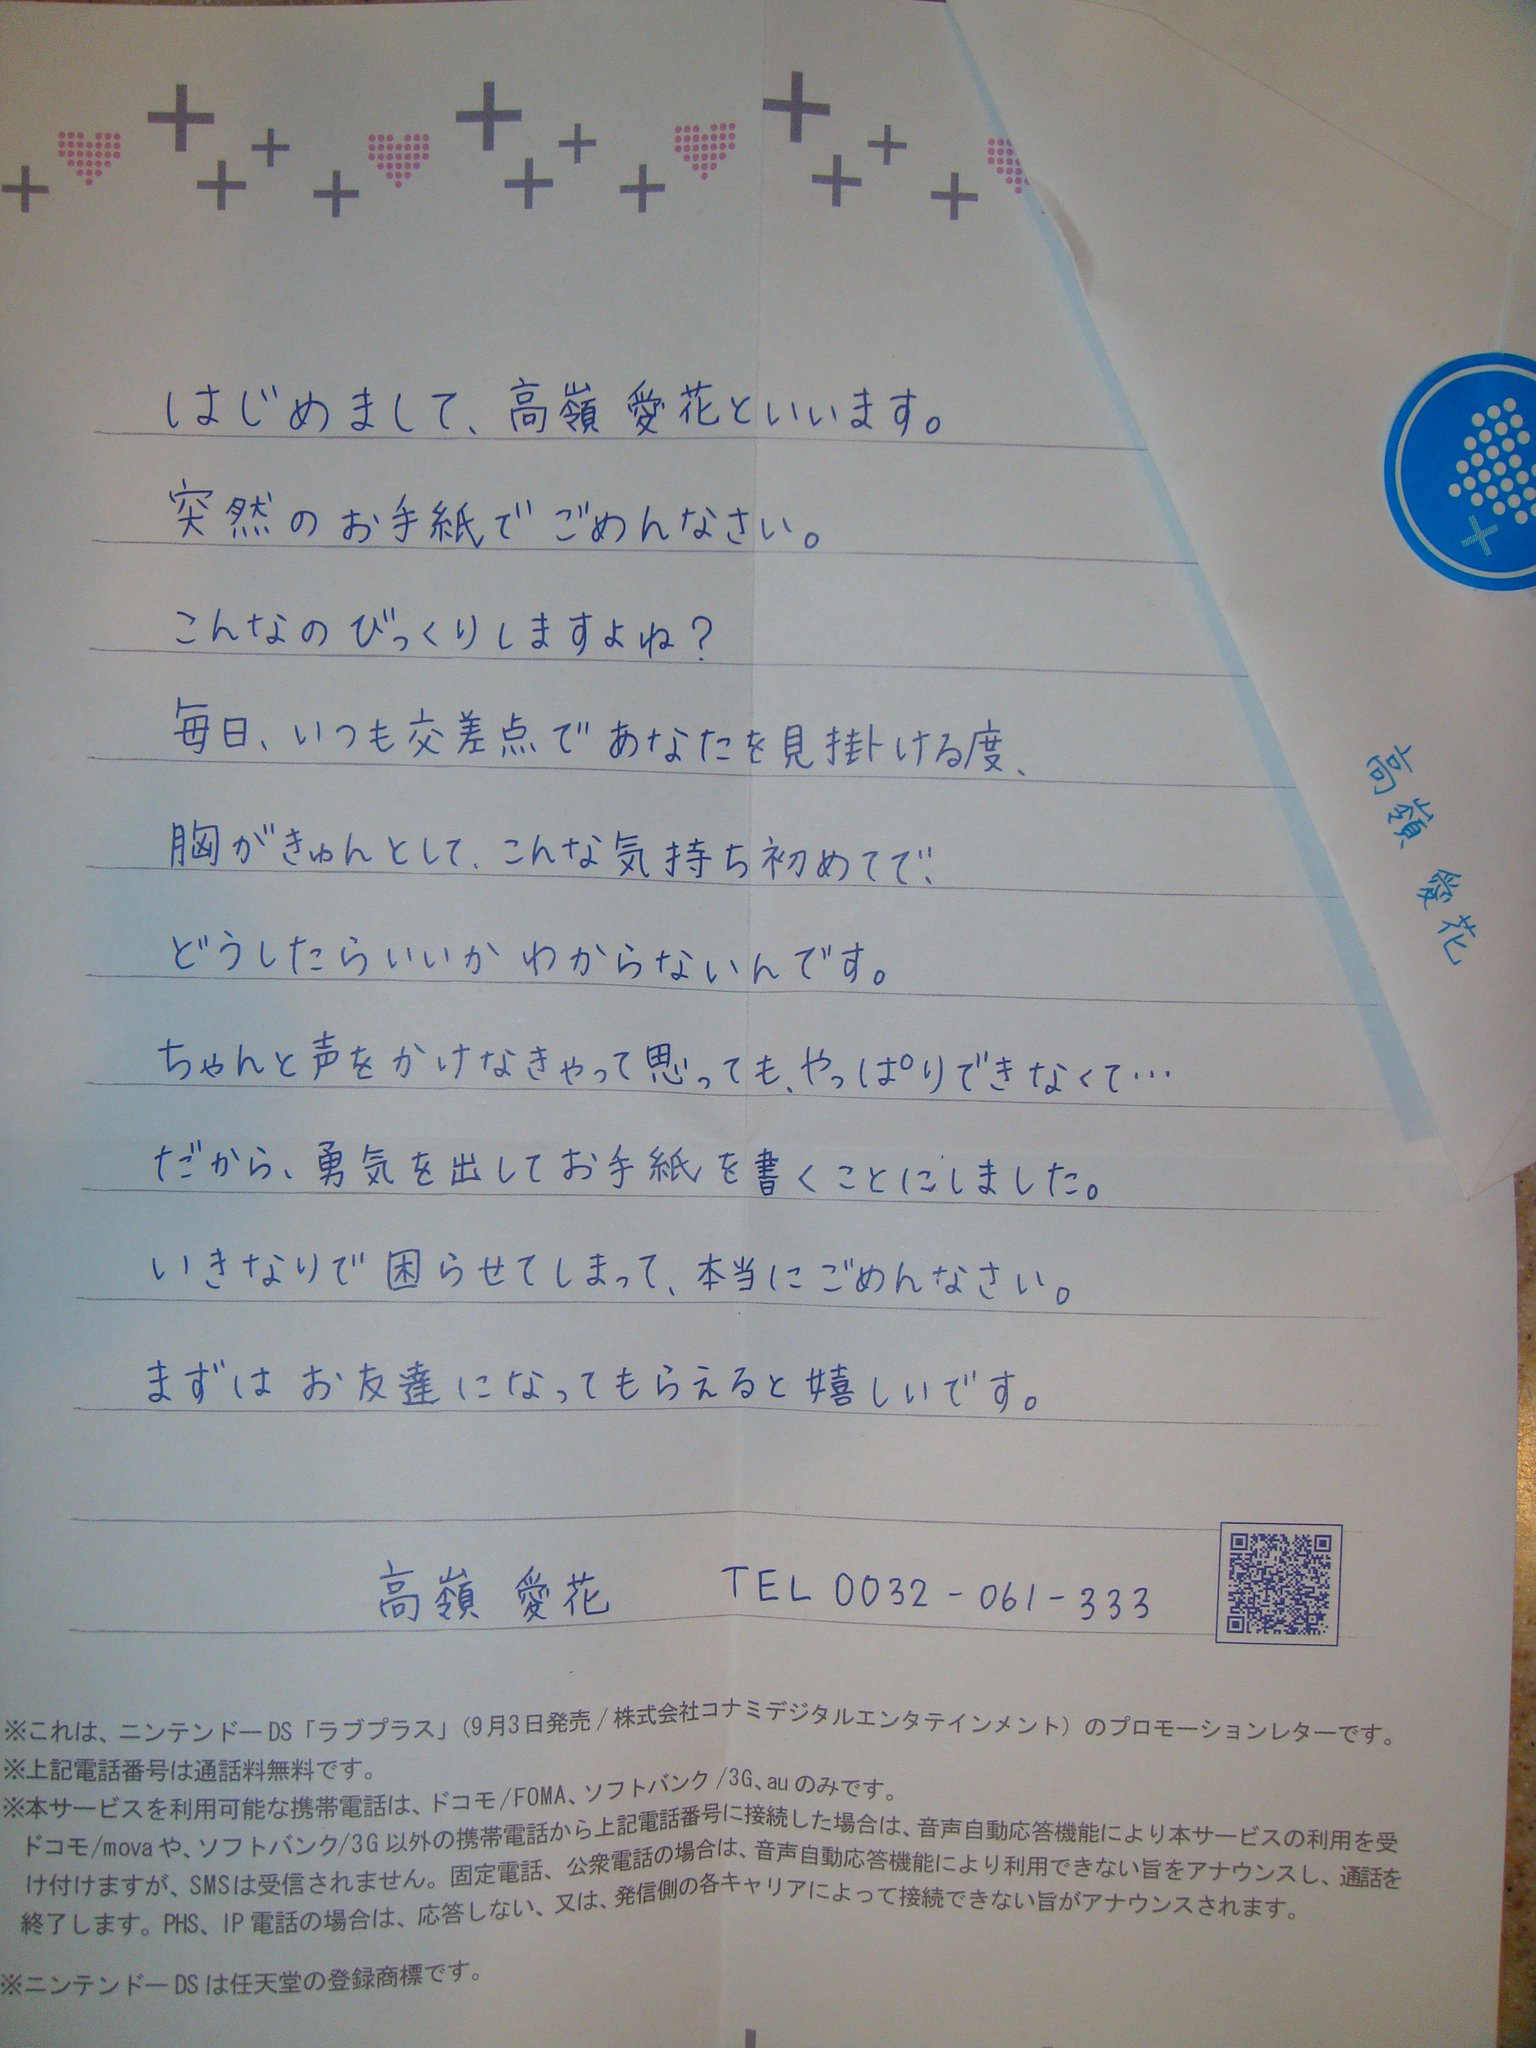 はじめまして、高嶺 愛花といいます。
突然のお手紙でごめんなさい。
こんなのびっくりしますよね？
毎日、いつも交差点であなたを見掛ける度、
胸がきゅんとして、こんな気持ち初めてで、
どうしたらいいかわからないんです。
ちゃんと声をかけなきゃって思っても、やっぱりできなくて…
だから、勇気を出してお手紙を書くことにしました。
いきなりで困らせてしまって、本当にごめんなさい。
まずはお友達になってもらえると嬉しいです。
高嶺 愛花 TEL 0032-061-333
※これは、ニンテンドーDS「ラブプラス」(9月3日発売/株式会社コナミデジタルエンタテインメント) のプロモーションレターです。
※上記電話番号は通話料無料です。
※本サービスを利用可能な携帯電話は、ドコモ/FOMA、ソフトバンク/3G、auのみです。
ドコモ/movaや、ソフトバンク/3G以外の携帯電話から上記電話番号に接続した場合は、音声自動応答機能により本サービスの利用を受
け付けますが、SMSは受信されません。固定電話、公衆電話の場合は、音声自動応答機能により利用できない旨をアナウンスし、通話を
終了します。PHS、IP電話の場合は、応答しない、又は、発信側の各キャリアによって接続できない旨がアナウンスされます。
※ニンテンドーDSは任天堂の登録商標です。
高嶺 愛花